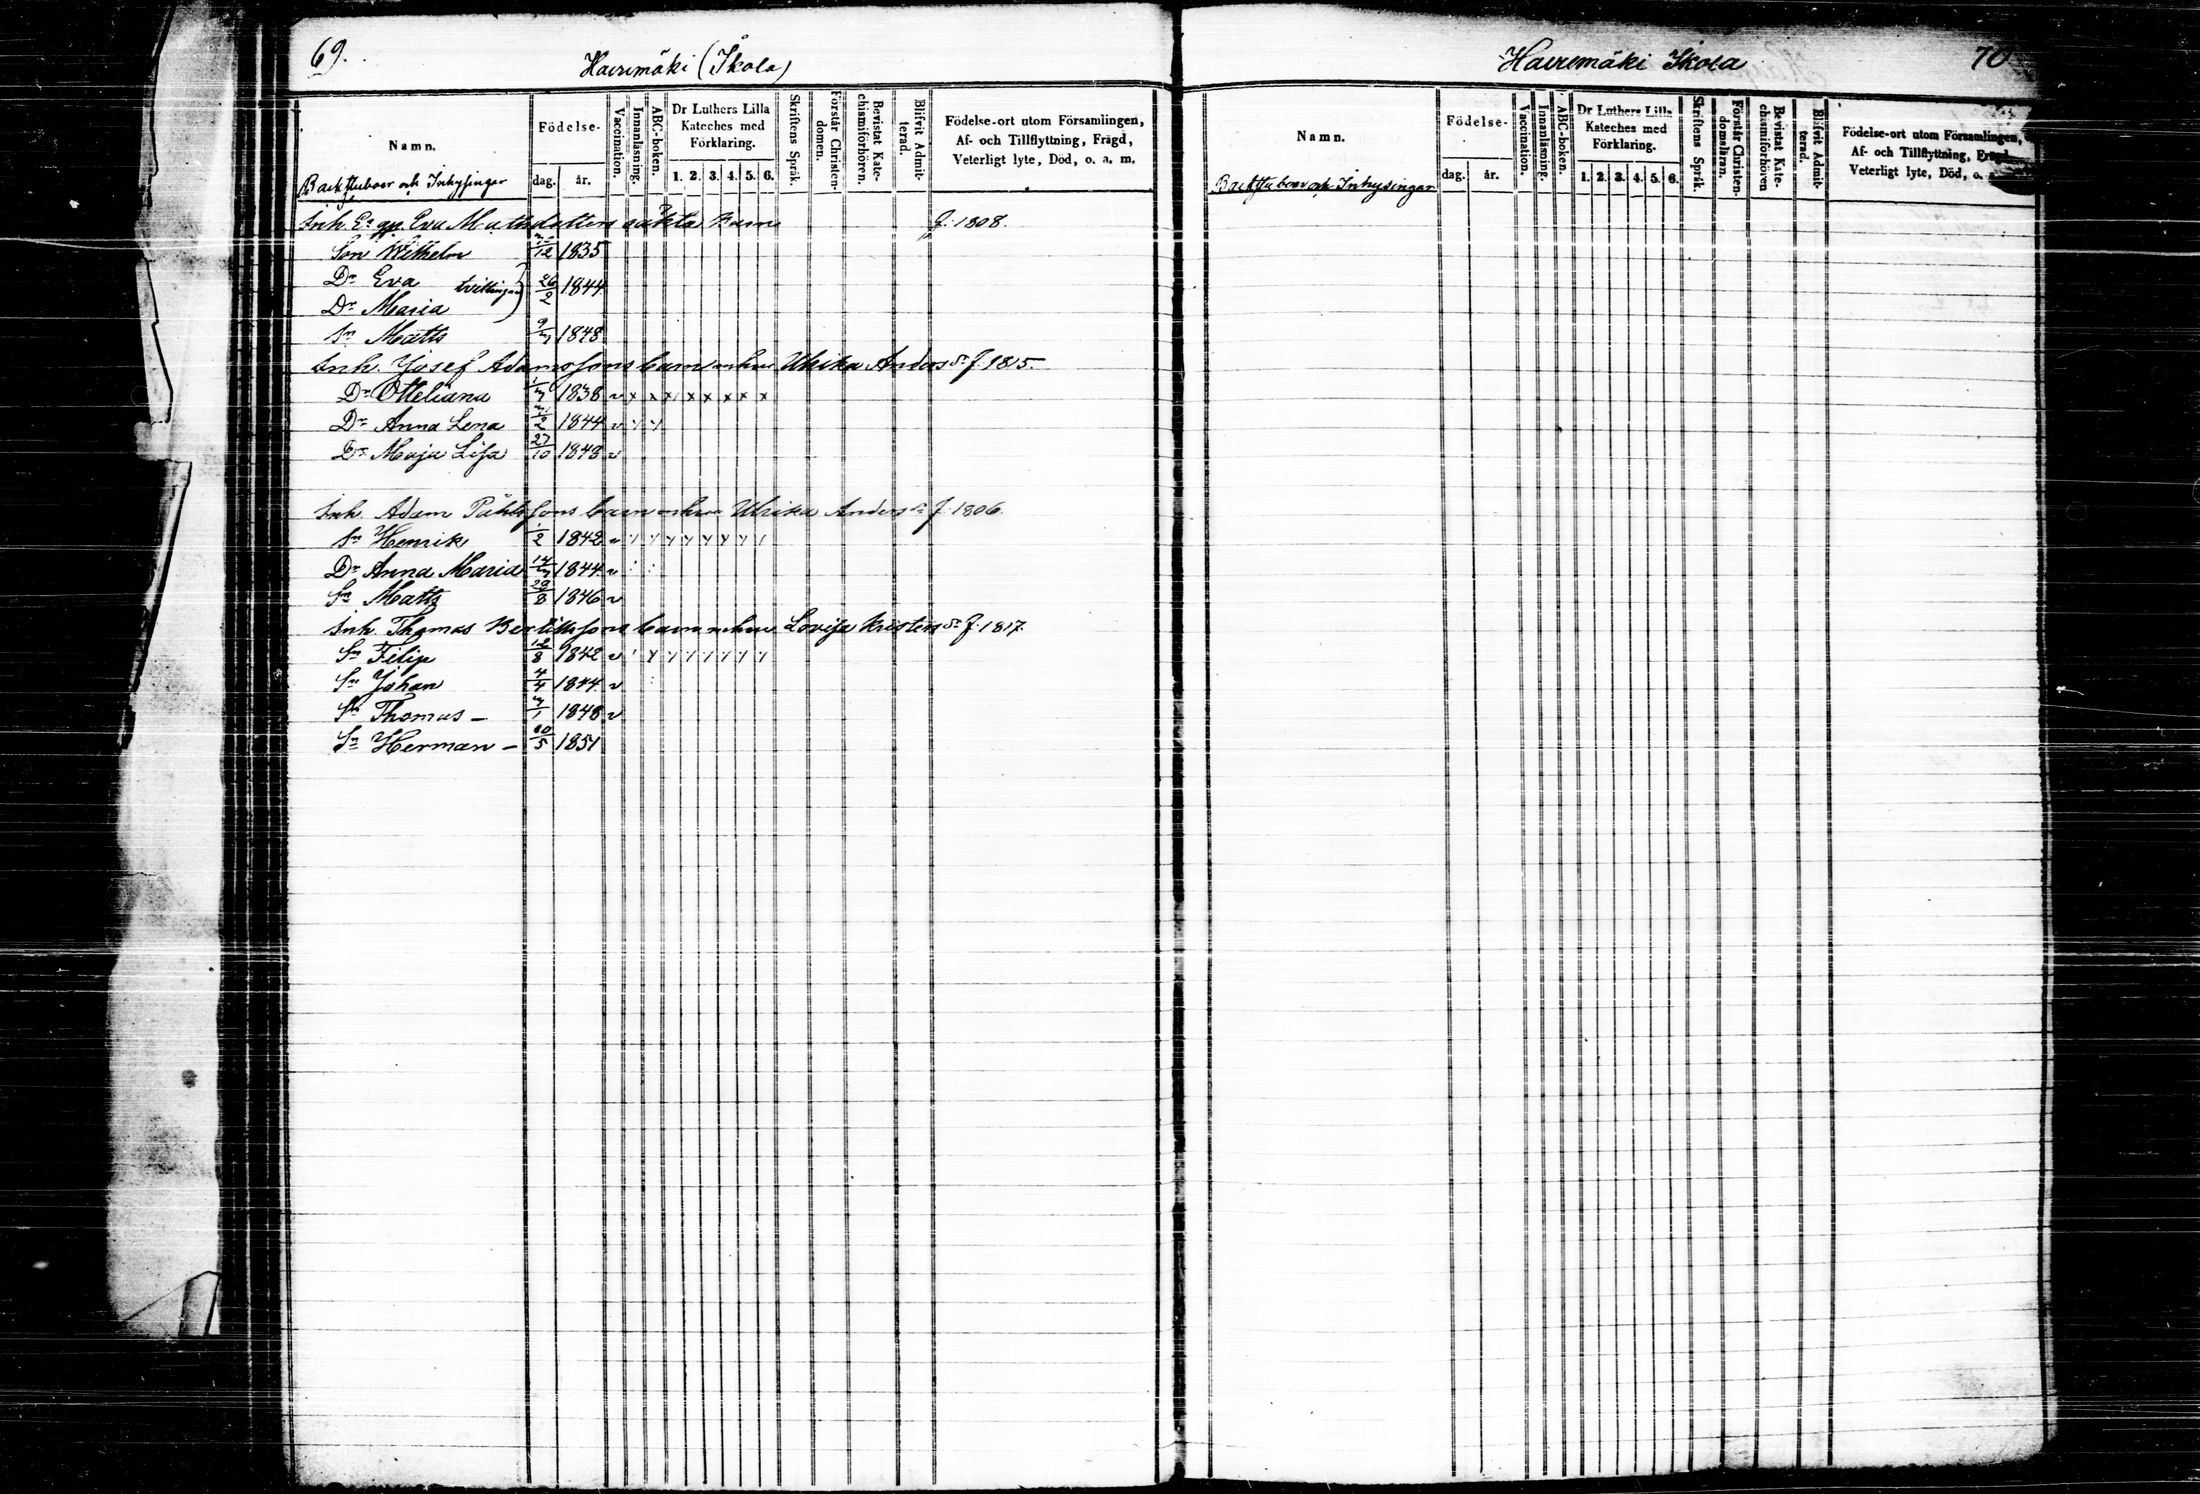 69.
Hairemäki (Skola)
Namn.
Födelse-
dag. år.
Vaccination.
Innanläsning.
ABC-boken.
Dr Luthers Lilla Kateches med Förklaring.
1. 2. 3. 4. 5. 6.
Skriftens Språk.
Förstår Christendomen.
Bevistat Katechismiförhören.
Blifvit Admitterad.
Födelse-ort utom Församlingen,
Af- och Tillflyttning, Frägd,
Veterligt lyte, Död, o. a. m.
Backstuboer och Inhysingar
Inh. Eva Mattsdotters oäkta barn f. 1808.
Son Wilhelm 12 1835
Dr Eva tvillingar 26/2 1844
Dr Maria
Sn Matts 9/7 1848
Inh. Josef Adamssons barn m hu Ulrika Anders dr f. 1815.
Dr Otteliana 1/7 1838 v x x x x x x x x
Dr Anna Lena 2 1844 v
Dr Maja Lisa 27/10 1848 v
Inh. Adam Påhlssons barn m hu Ulrika Anders dr f. 1806.
Sn Henrik 1/2 1842 v
Dr Anna Maria 14/7 1844 v
Sn Matts 29/8 1846 v
Inh. Thomas Bertillssons barn m hu Lovisa Kristers dr f. 1817.
Sn Filip 12/8 1842 v
Sn Johan 4/4 1844 v
Sn Thomas - 7/1 1848 v
Sn Herman - 10/5 1851
Hairemäki Skola
70
Namn.
Födelse-
dag. år.
Vaccination.
Innanläsning.
ABC-boken.
Dr Luthers Lilla Kateches med Förklaring.
1. 2. 3. 4. 5. 6.
Skriftens Språk.
Förstår Christendomsläran.
Bevistat Katechismiförhören
Blifvit Admitterad.
Födelse-ort utom Församlingen,
Af- och Tillflyttning, Frägd
Veterligt lyte, Död, o. a.
Backstuboer och Inhysingar